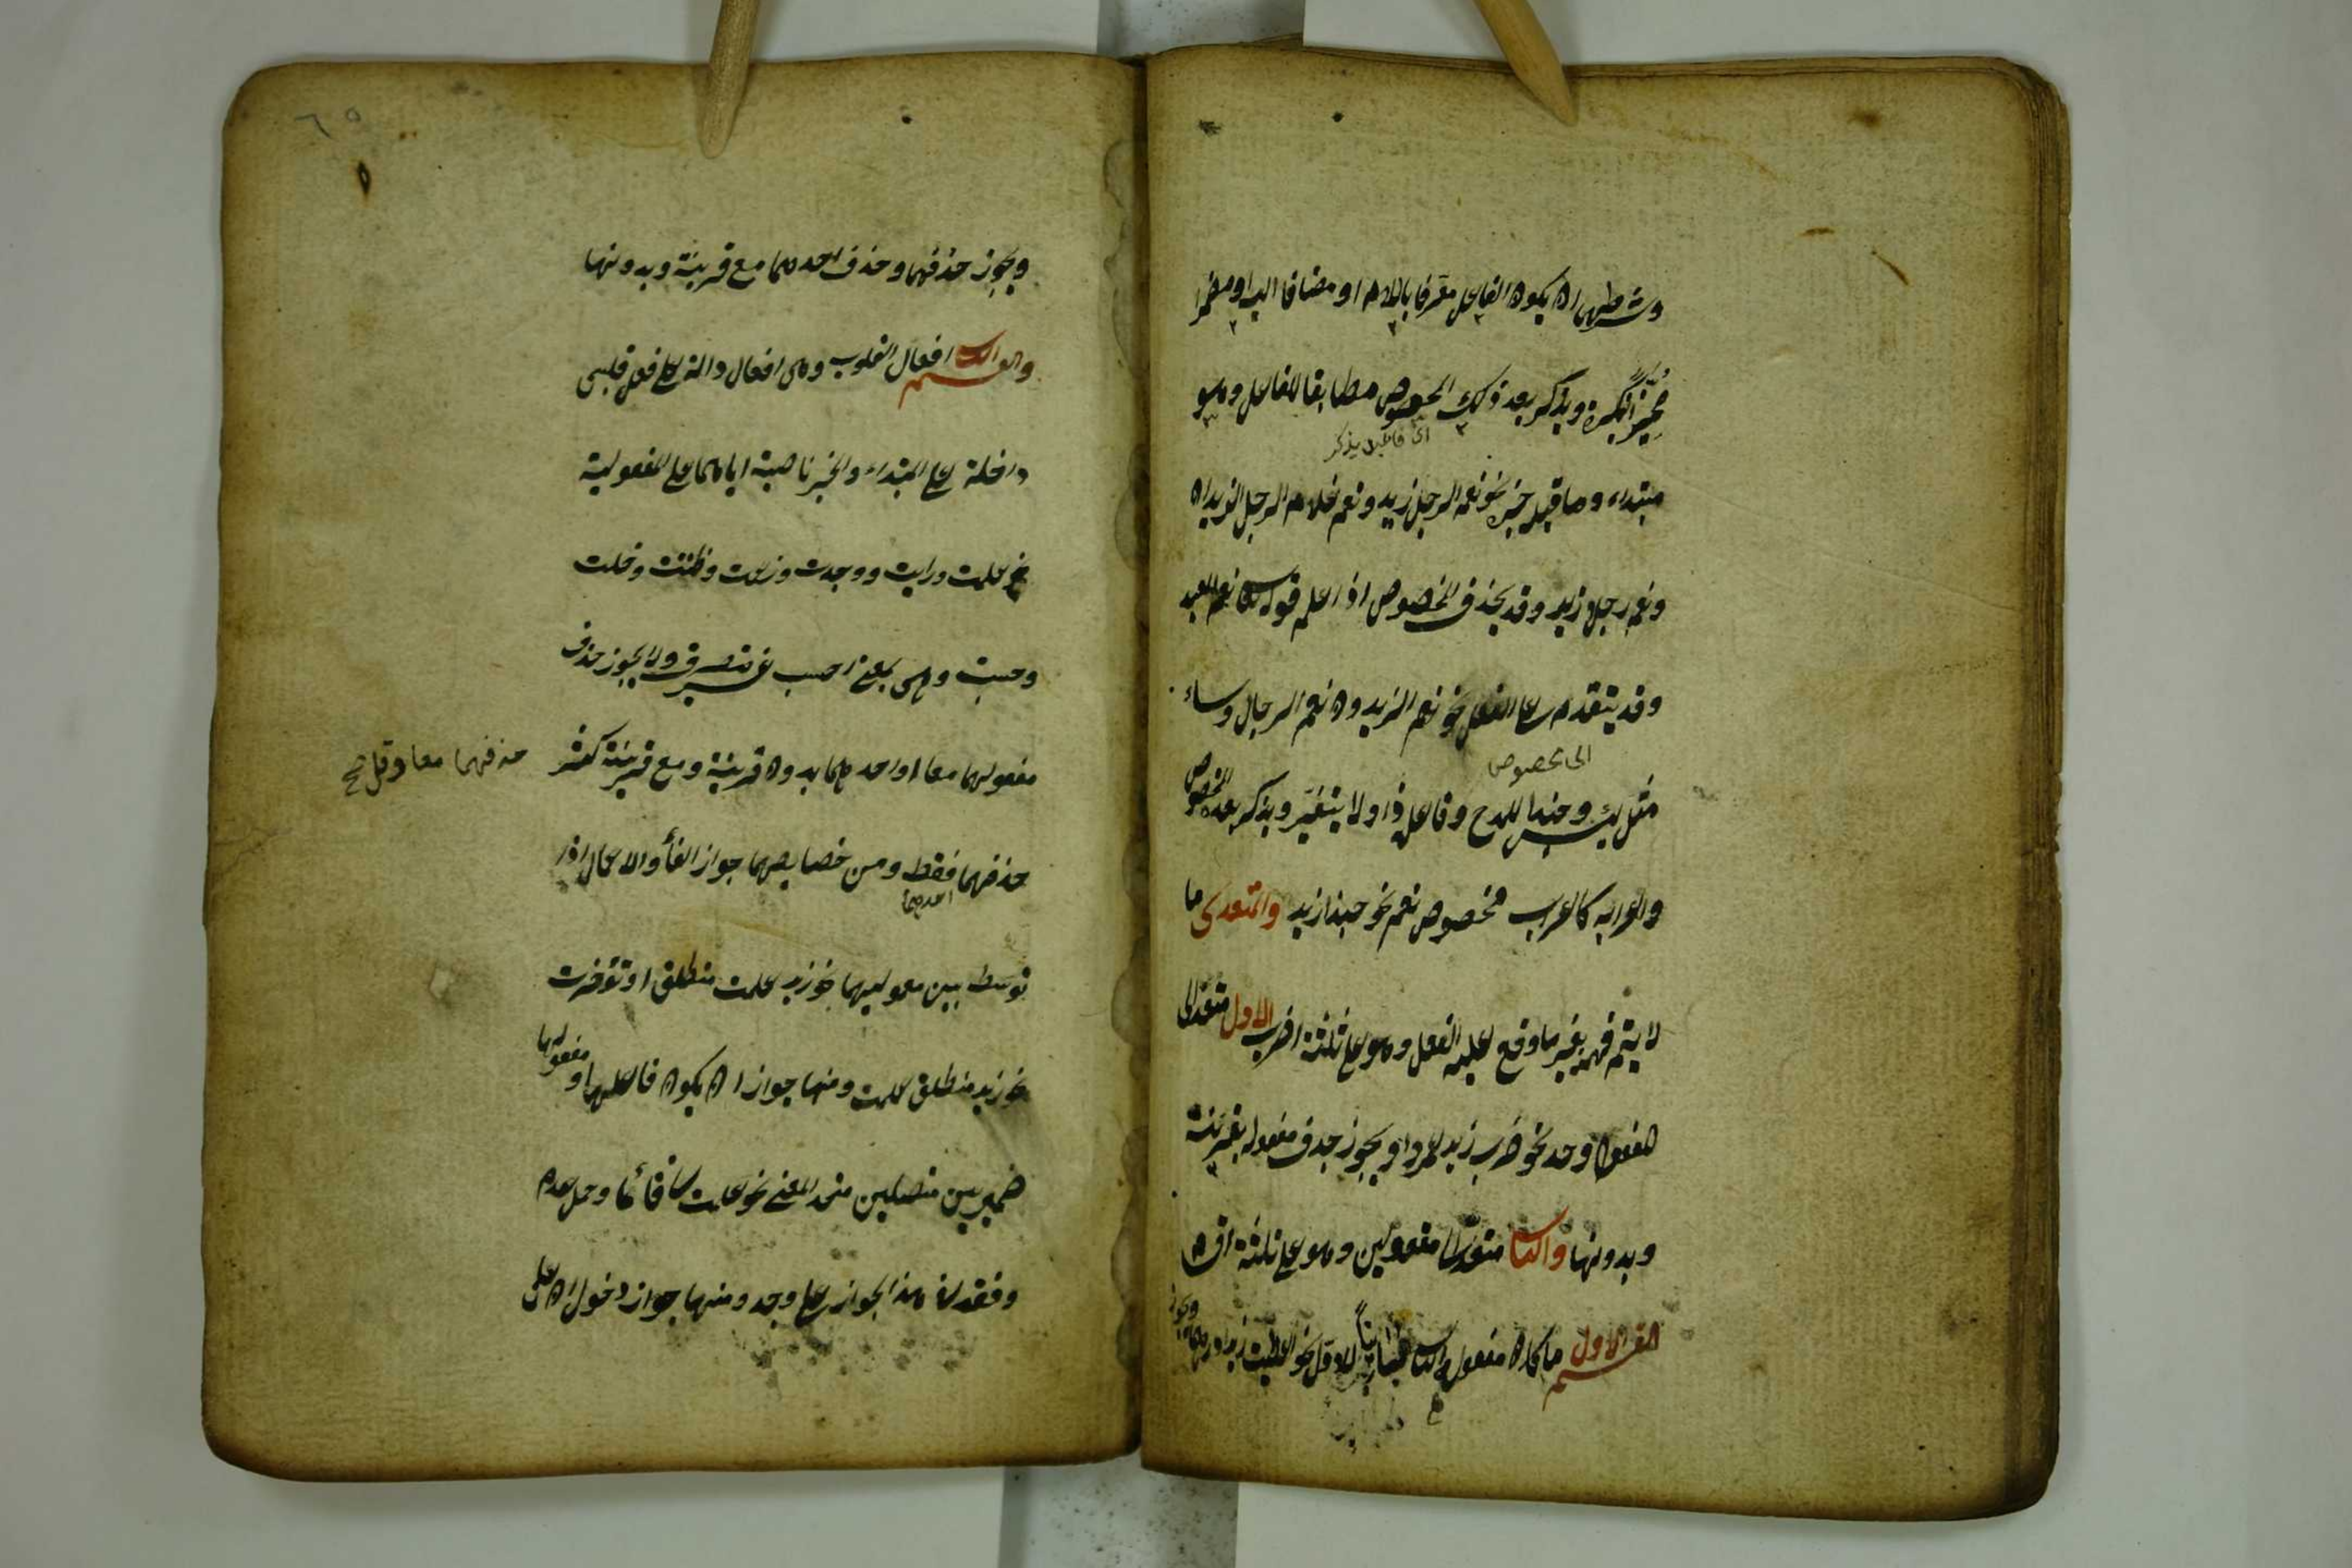 وشرطهما ان يكون الفاعل معرفا باللام او مضافا اليه او مضمرا
مميزا بنكرة ويذكر بعد ذلك المخصوص مطابقا للفاعل وهو
اى فاعل يذكر
مبتداء وما قبله خبره نحو نعم الرجل زيد ونعم غلام الرجل الزيدان
ونعم رجلا زيد وقد يحذف المخصوص اذا علم نعم العبد
وقد يتقدم على الفعل نحو نعم الزيدون نعم الرجال وساء
الى مخصوص
مثل بئس وحبذا للمدح وفاعل ذا ولا يتغير ويذكر بعده المخصوص
واعرابه كاعراب مخصوص نعم نحو حبذا زيد والمتعدى ما
لا يتم فهمه بغير ما وقع عليه الفعل وهو على ثلثة اضرب الاول متعد الى
مفعول واحد نحو ضرب زيد عمروا ويجوز حذف مفعوله بقرينة
وبدونها والثانى متعد الى مفعولين وهو على ثلثة اقسام
القسم الاول ما كان مفعوله الثانى مباينا للاول نحو اعطيت زيدا درهما ويجوز
٦٥
ويجوز حذفهما وحذف احدهما مع قرينة وبدونها
والقسم الثانى افعال القلوب وهى افعال دالة على فعل قلبى
داخلة على المبتداء والخبر ناصبة اياهما على المفعولية
نحو علمت ورايت ووجدت وزعمت وظننت وخلت
وحسبت وهى بمعنى احسب غير متصرف ولا يجوز حذف
مفعوليهما معا او احدهما بدون قرينة ومع قرينة كثر
حذفهما معا وقل صح
حذفهما فقط ومن خصايصهما جواز الغاء والاعمال اذا
احدهما
توسط بين معموليهما نحو زيد علمت منطلق او تؤخرت
نحو زيد منطلق علمت ومنها جواز ان يكون فاعلهما ومفعولهما
ضميرين متصلين متحد المعنى نحو علمت قائما وحمل عدم
وفقد هذا الجواز على وجد ومنها جواز دخول ان على